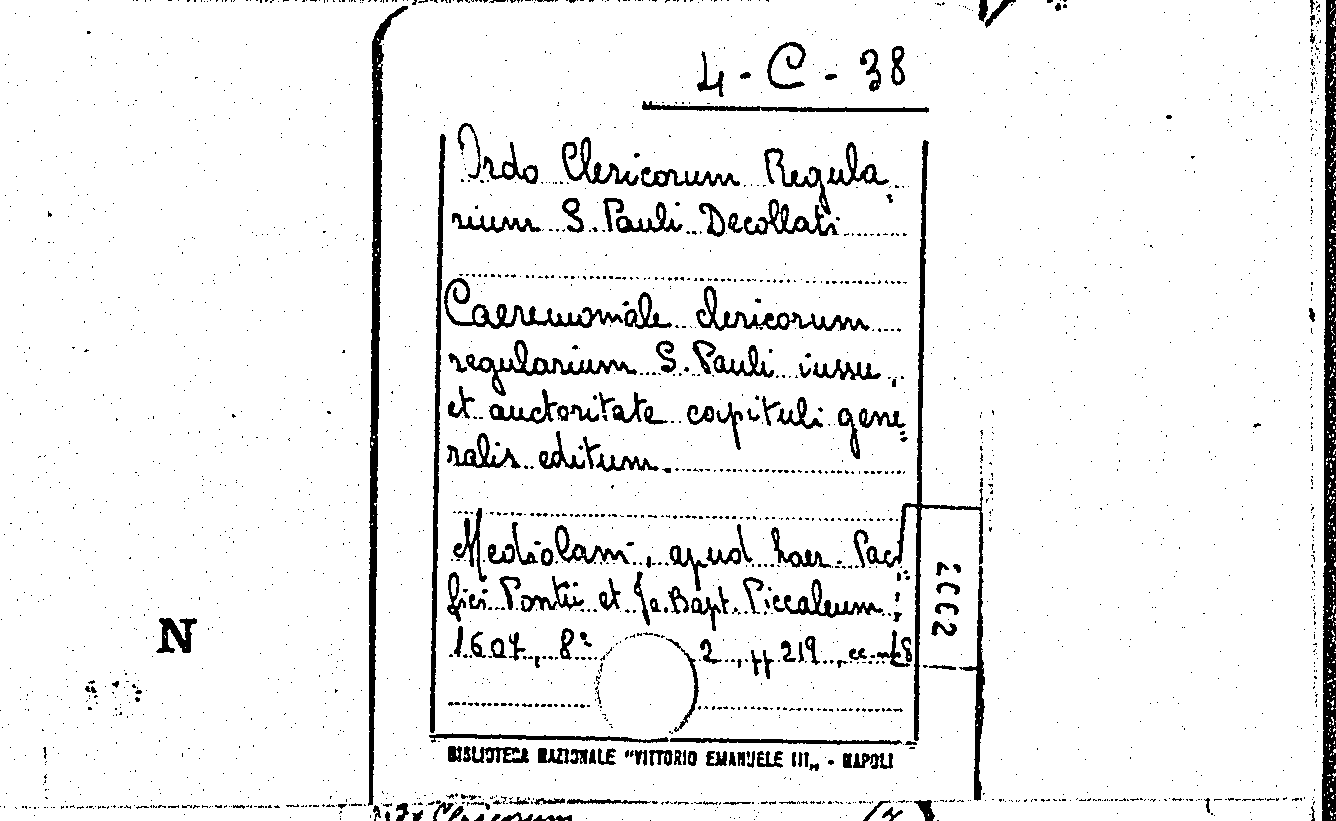 4-C-38
Ordo Clericorum Regula-
rium S. Pauli Decollati
Caeremoniale clericorum
regularium S. Pauli iussu
et auctoritate capituli gene=
ralis editum.
Mediolani, apud haer. Paci
fici Pontii et Jo. Bapt. Piccaleum
1607, 8° 2, pp 219, cc.
2002
N
BIBLIOTECA NAZIONALE "VITTORIO EMANUELE III„ - NAPOLI
Clericorum